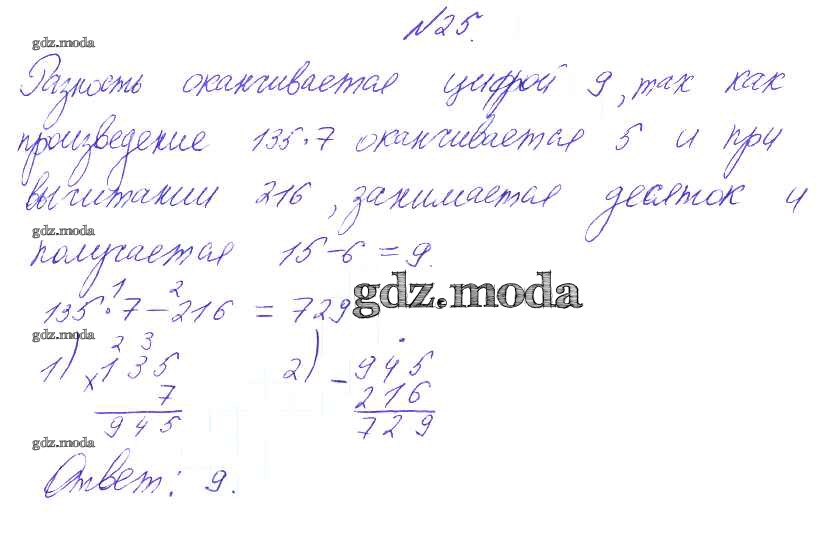 №25.
gdz.moda
Разность оканчивается цифрой 9, так как
произведение 135·7 оканчивается 5 и при
вычитании 216, занимается десяток и
gdz.moda
получается 15-6=9.
1 2
135·7-216=729
gdz.moda
gdz.moda
2 3
1) ×135 2) -945
7 216
945 729
gdz.moda
Ответ: 9.